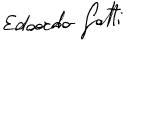 Edoardo Gatti